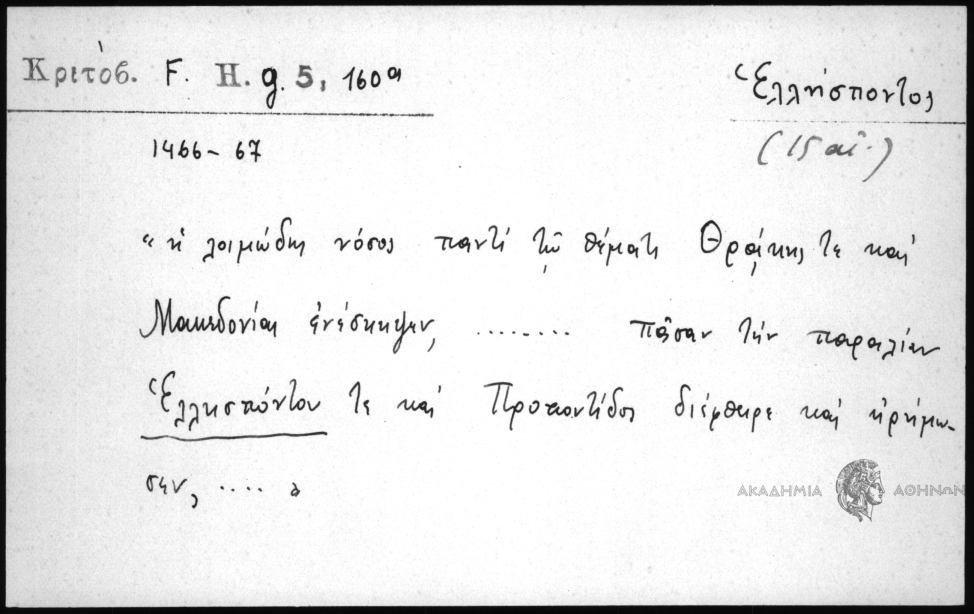 Κριτόβ. F. H. g. 5, 160α
Ἑλλήσποντος
1466-67
(15 αἰ.)
"ἡ λοιμώδης νόσος παντί τῷ θέματι Θρᾴκης τε καί
Μακεδονίας ἐνέσκηψεν, ........ πᾶσαν τήν παραλίαν
Ἑλλησπόντου τε καί Προποντίδος διέφθειρε καί ἠρήμω-
σεν, .... "
ΑΚΑΔΗΜΙΑ ΑΘΗΝΩΝ